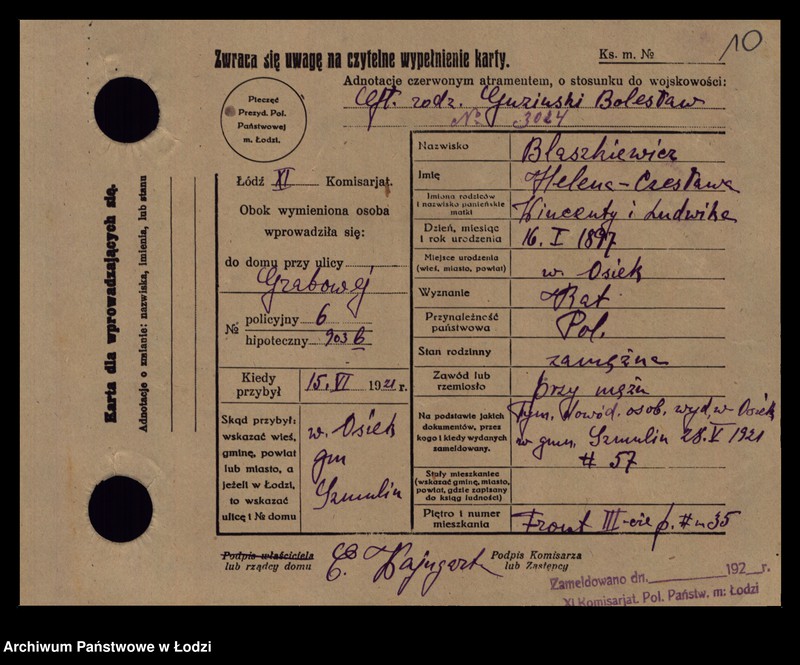 10
Zwraca się uwagę na czytelne wypełnienie karty.
Ks. m. №
Adnotacje czerwonym atramentem, o stosunku do wojskowości:
rodz. Guziński Bolesław
№ 3024
Pieczęć
Prezyd. Pol.
Państwowej
m. Łodzi.
Karta dla wprowadzających się.
Adnotacje o zmianie: nazwiska, imienia, lub stanu
Łódź XI Komisarjat.
Obok wymieniona osoba
wprowadziła się:
do domu przy ulicy
Grabowej
№ policyjny 6
hipoteczny 903 b
Kiedy przybył 15. VI 1921 r.
Skąd przybył:
wskazać wieś,
gminę, powiat
lub miasto, a
jeżeli w Łodzi,
to wskazać
ulicę i № domu
w. Osiek
gm
Szmulin
Nazwisko Błaszkiewicz
Imię Helena-Czesława
Imiona rodziców
i nazwisko panieńskie
matki
Wincenty i Ludwika
Dzień, miesiąc
i rok urodzenia
16. I 1897
Miejsce urodzenia
(wieś, miasto, powiat)
w. Osiek
Wyznanie Kat.
Przynależność
państwowa
Pol.
Stan rodzinny zamężna
Zawód lub
rzemiosło
przy mężu
Na podstawie jakich
dokumentów, przez
kogo i kiedy wydanych
zameldowany.
Tym. dowód. osob. wyd. w Osiek
w gmn. Szmulin 28. V 1921
# 57
Stały mieszkaniec
(wskazać gminę, miasto,
powiat, gdzie zapisany
do ksiąg ludności)
Piętro i numer
mieszkania
Front III-cie p. # m 35
Podpis właściciela
lub rządcy domu
Podpis Komisarza
lub Zastępcy
Zameldowano dn. 192 r.
XI Komisarjat. Pol. Państw. m: Łodzi
Archiwum Państwowe w Łodzi